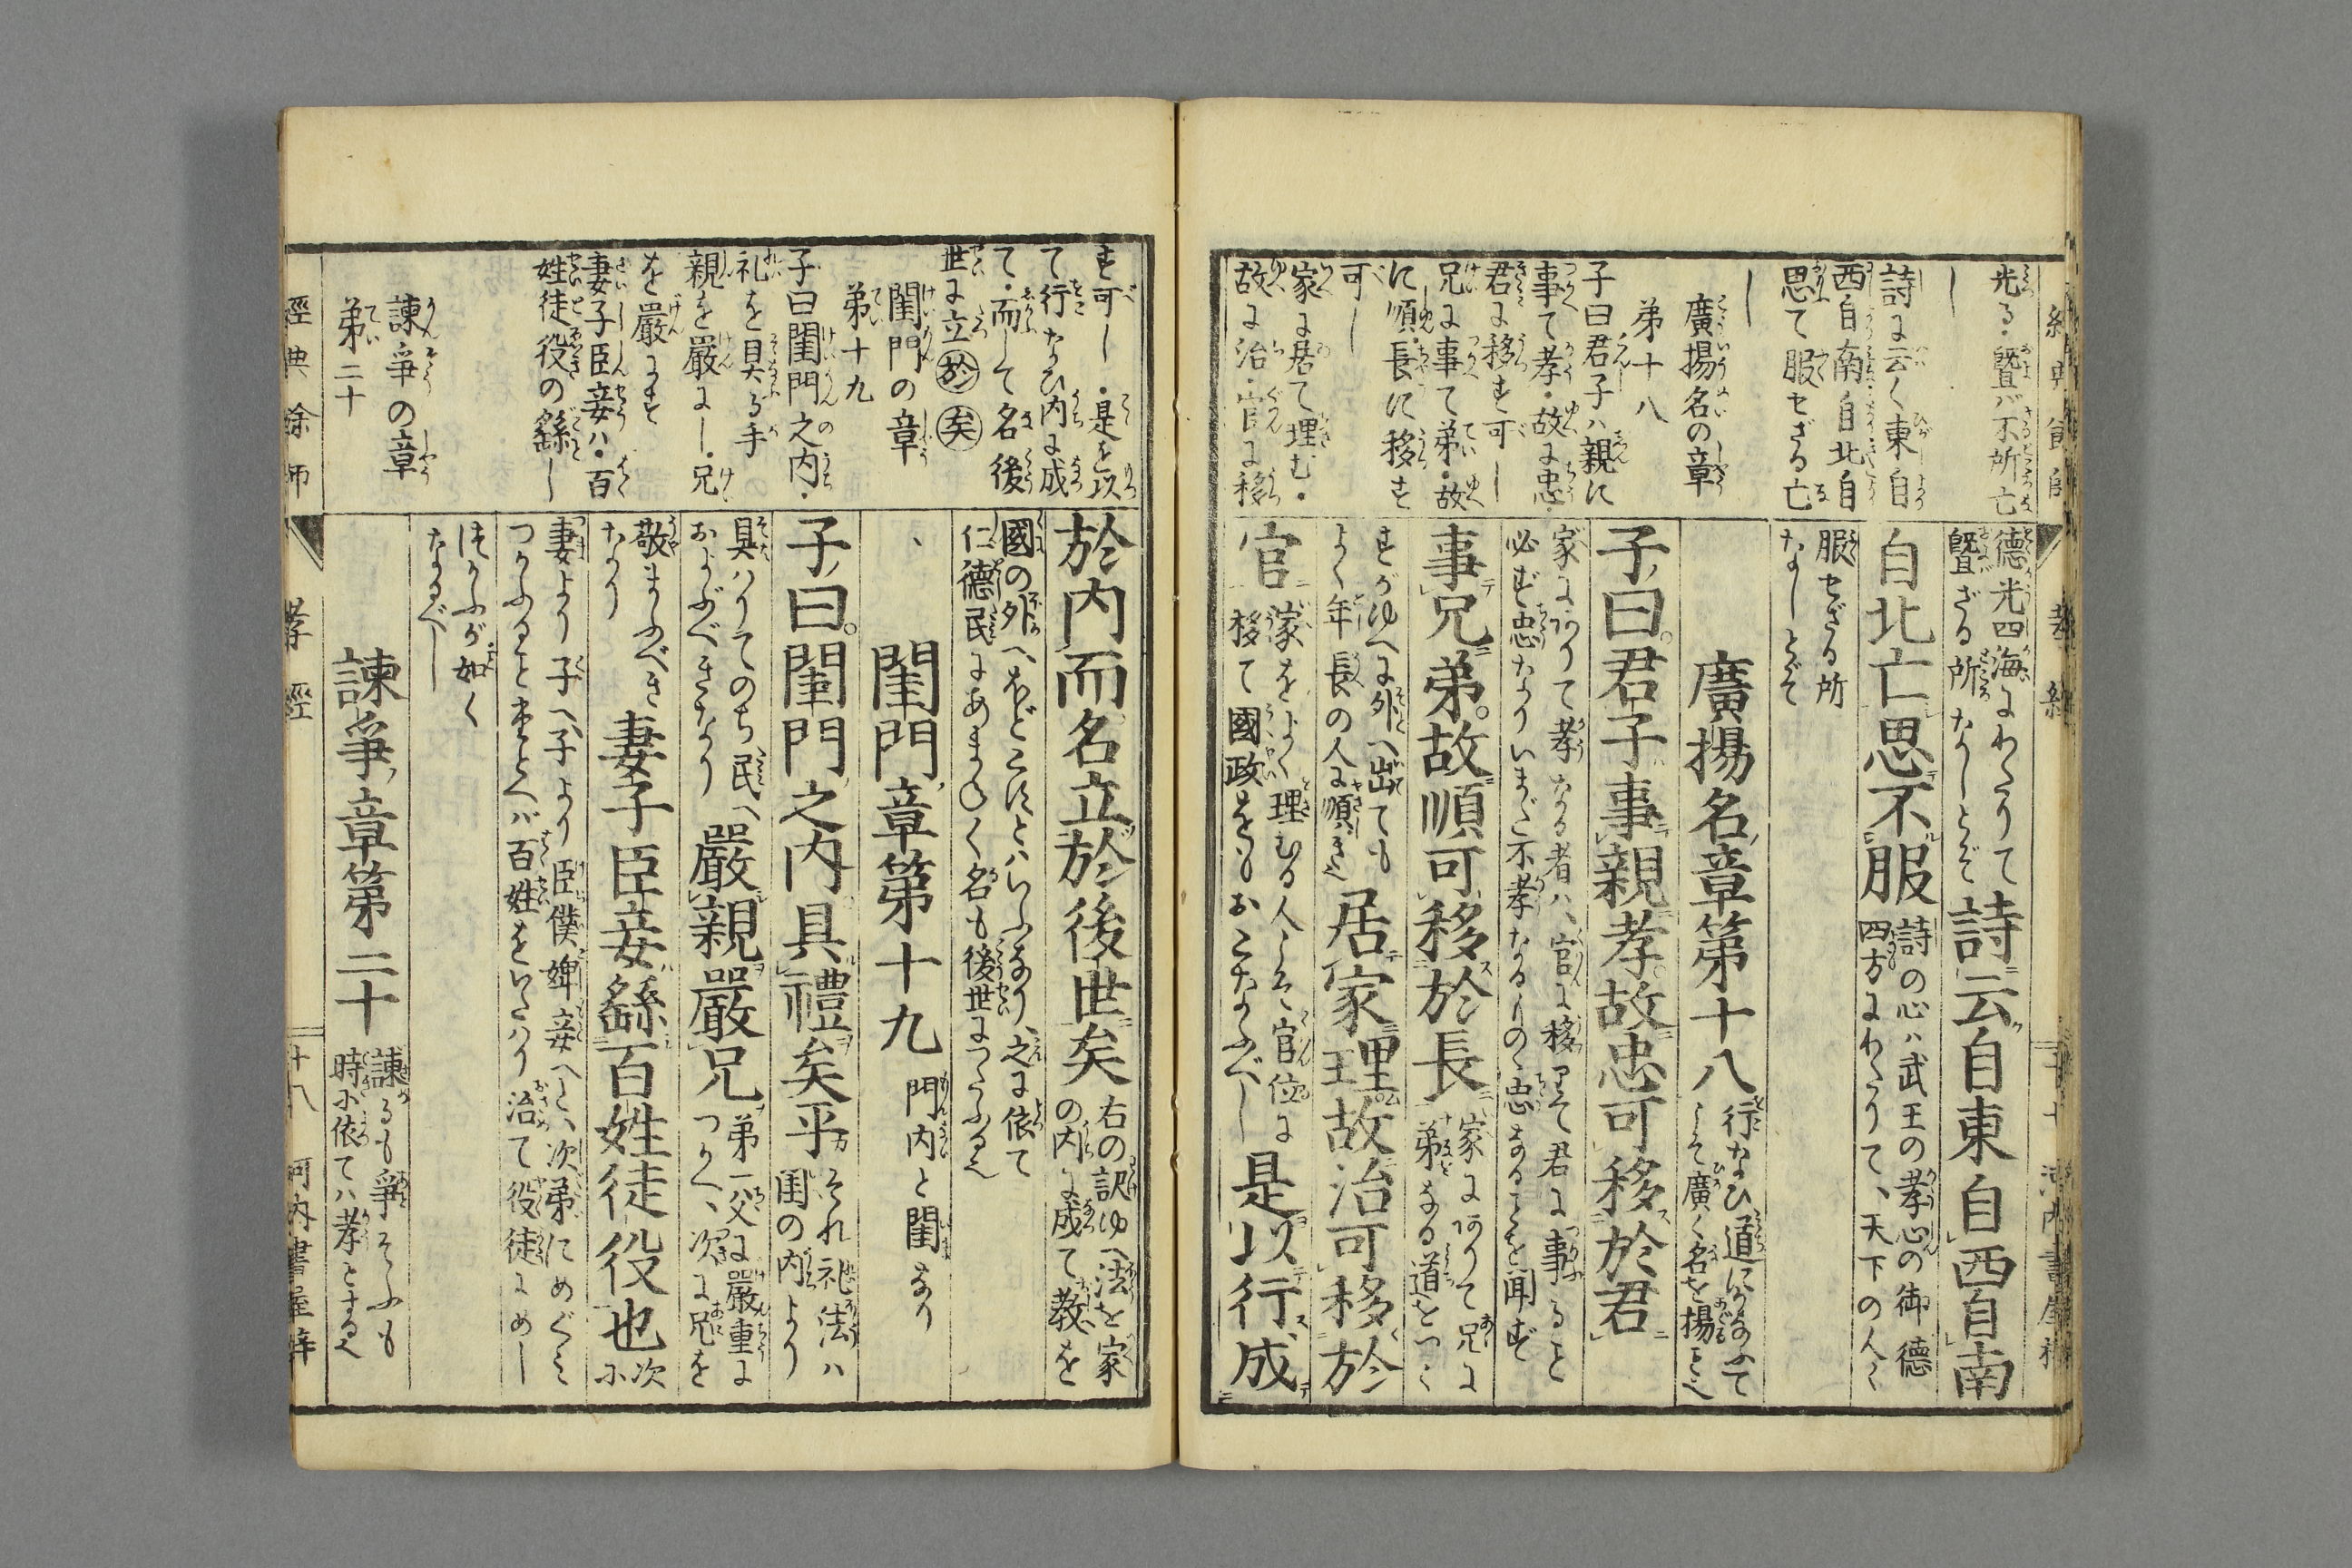 光る・曁バ不所亡
し
詩に云く東自
西自南自北自
思て服せざる亡
し
廣揚名の章
弟十八
子曰君子ハ親に
事て孝・故に忠・
君に移す可し
兄に事て弟・故
に順・長に移す
可し
家に居て理む・
故に治・官に移
德光四海にわたりて
曁ざる所なしとぞ
詩云自東自西自南
自北亡思不服
詩の心ハ武王の孝心の御德
四方にわたりて、天下の人々
服せざる所
なしとぞ
廣揚名章第十八
子曰。君子事親孝。故忠可移於君
家にありて孝なる者ハ、官に移りて君に事ること
必ず忠なりいまだ不孝なるもの忠あることを聞ず
事兄弟。故順可移於長
家にありて兄に
弟なる道をつく
すがゆへに外へ出ても
よく年長の人に順ふ
居家理故治可移於
官
家をよく理むる人こそ官位に
移て國政をもおこなふべし
是以行成
す可し・是を以
て行なひ内に成
て・而して名後
世に立㊀於 矣
閨門の章
弟十九
子曰閨門之内・
礼を具る手
親を嚴にし・兄
を嚴にす
妻子臣妾ハ・百
姓徒役の繇し
諫爭の章
弟二十
於内而名立於後世矣
右の訳ゆへ法を家
の内に成て教を
國の外へほどこすとハいふなり、之に依て
仁德民にあまねく名も後世につたふる也
閨門章第十九
門内と閨なり
子曰。閨門之内具禮矣乎
それ礼法ハ
閨の内より
具ハりてのち民へ
およぶべきなり
嚴親嚴兄
弟一父に嚴重に
つかへ、次に兄を
敬まふべき
なり
妻子臣妾繇百姓徒役也
次
小
妻より子へ子より臣僕婢妾へと、次弟にめぐミ
つかふること
百姓をいたハり治て役徒にめし
つかふが如く
なるべし
諫爭章第二十
諫るも爭そふも
時に依てハ孝とする也
經典餘師
孝經
十八
河内書屋梓